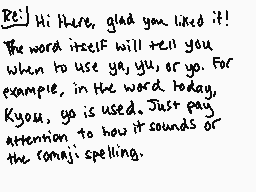 Re: Hi there, glad you liked it!
The word itself will tell you
when to use ya, yu, or yo. For
example, in the word today,
Kyou, yo is used. Just pay
attention to how it sounds or
the romaji spelling.